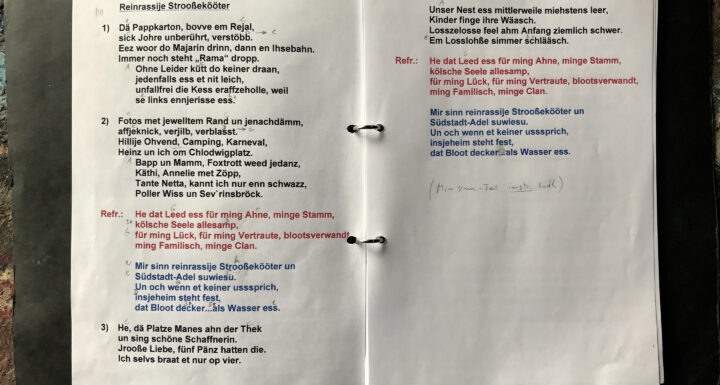 Reinrassije Strooßekööter
1) Dä Pappkarton, bovve em Rejal,
sick Johre unberührt, verstöbb.
Eez woor do Majarin drinn, dann en Ihsebahn.
Immer noch steht „Rama“ dropp.
Ohne Leider kütt do keiner draan,
jedenfalls ess et nit leich,
unfallfrei die Kess eraffzeholle, weil
se links ennjerisse ess.
2) Fotos met jewelltem Rand un jenachdämm,
affjeknick, verjilb, verblasst.
Hillije Ohvend, Camping, Karneval,
Heinz un ich om Chlodwigplatz.
Bapp un Mamm, Foxtrott weed jedanz,
Käthi, Annelie met Zöpp,
Tante Netta, kannt ich nur enn schwazz,
Poller Wiss un Sev`rinsbröck.
Refr.: He dat Leed ess für ming Ahne, minge Stamm,
kölsche Seele allesamp,
für ming Lück, für ming Vertraute, blootsverwandt,
ming Familisch, minge Clan.
Mir sinn reinrassije Strooßekööter un
Südstadt-Adel suwiesu.
Un och wenn et keiner usssprich,
insjeheim steht fest,
dat Bloot decker...als Wasser ess.
3) He, dä Platze Manes ahn der Thek
un sing schöne Schaffnerin.
Jrooße Liebe, fünf Pänz hatten die.
Ich selvs braat et nur op vier.
Unser Nest ess mittlerweile miehstens leer,
Kinder finge ihre Wäasch.
Losszelosse feel ahm Anfang ziemlich schwer.
Em Losslohße simmer schlääsch.
Refr.: He dat Leed ess für ming Ahne, minge Stamm,
kölsche Seele allesamp,
für ming Lück, für ming Vertraute, blootsverwandt,
ming Familisch, minge Clan.
Mir sinn reinrassije Strooßekööter un
Südstadt-Adel suwiesu.
Un och wenn et keiner usssprich,
insjeheim steht fest,
dat Bloot decker...als Wasser ess.